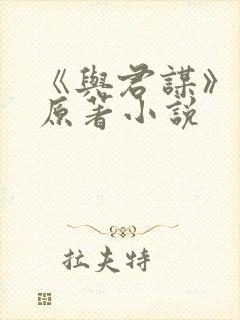 《與君謀》
原著小說
拉夫特